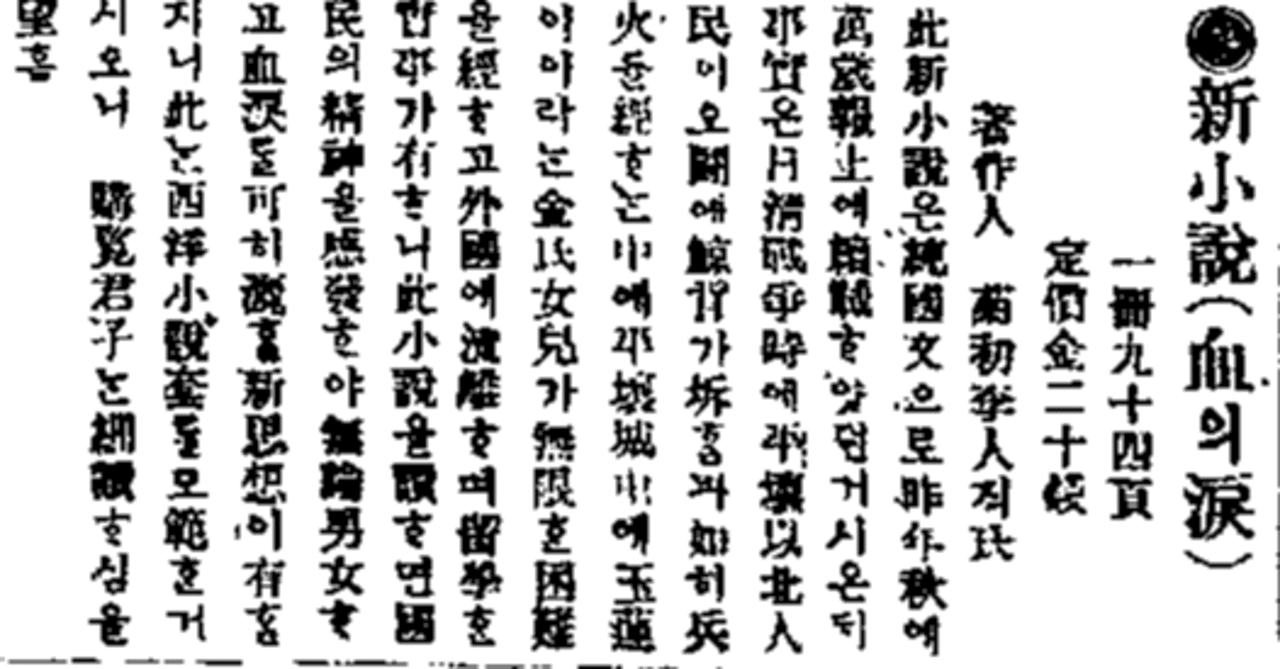 ◉新小說(血의淚)
一冊九十四頁
定價金二十錢
著作人 菊初李人稙氏
此新小說은純國文으로昨年秋에
萬歲報上에續載ᄒᆞ얏던거시온ᄃᆡ
事實은日淸戰爭時에平壤以北人
民이오鬪에鯨背가坼홈과如히兵
火ᄅᆞᆯ經ᄒᆞᄂᆞᆫ中에平壤城中에玉蓮
이이라ᄂᆞᆫ金氏女兒가無限ᄒᆞᆫ困難
을經ᄒᆞ고外國에流離ᄒᆞ며留學ᄒᆞᆫ
가有ᄒᆞ니此小說을讀ᄒᆞ면國
民의精神을感發ᄒᆞ야無論男女ᄒᆞ
고血淚ᄅᆞᆯ可히灑홀新思想이有홀
지니此ᄂᆞᆫ西洋小說套ᄅᆞᆯ모範ᄒᆞᆫ거
시오니 購覽君子ᄂᆞᆫ細讀ᄒᆞ심을
望홈